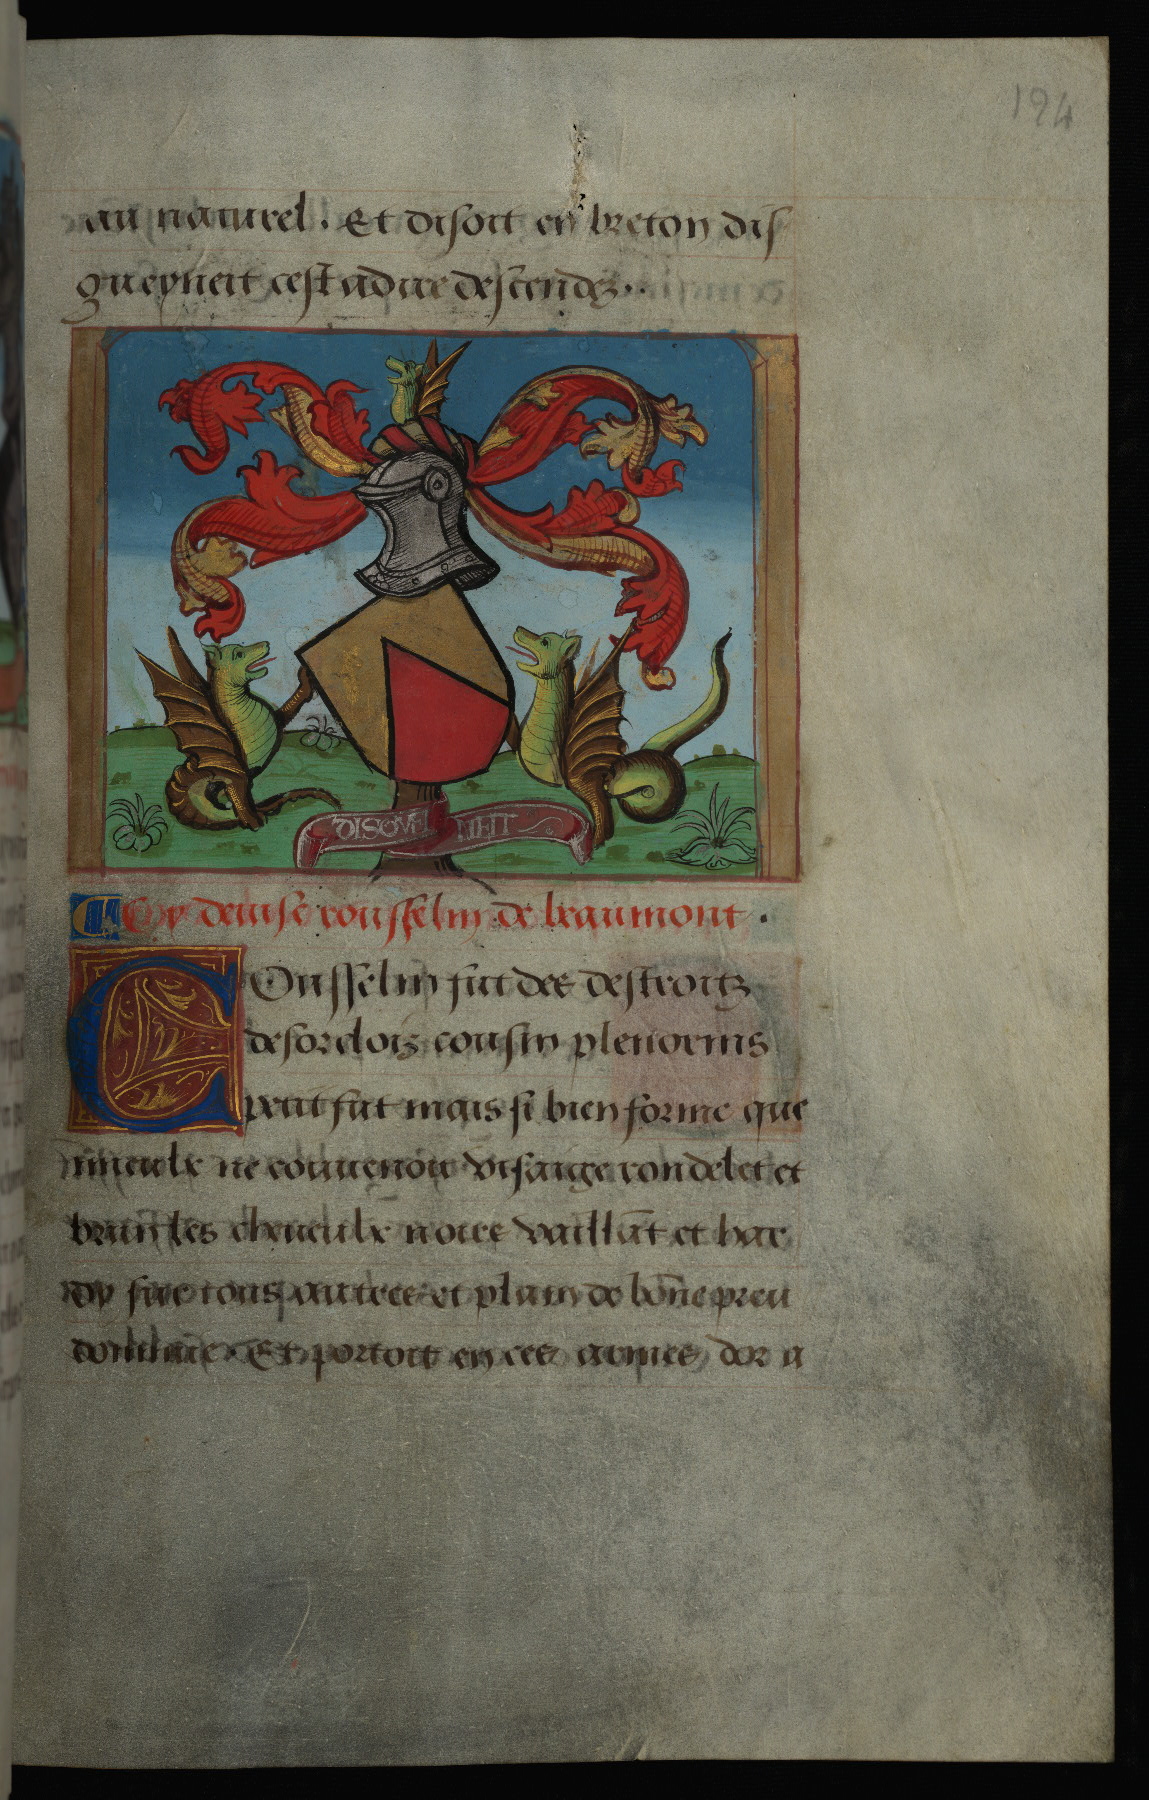 194
au naturel. Et disoit en breton dis
queyneit cest adire descendez..
DISQVEI NEIT
Cy deuise cousselin de beaumont.
Cousselin fut des destroitz
desorelois cousin plenorius
petit fut mais si bien forme que
mieulx ne conuenoit visaige rondelet et
brun les cheueulx noirs vaillāt et har
dy sur tous autres et plain de bōne preu
dommie Et portoit en ces armes dor a